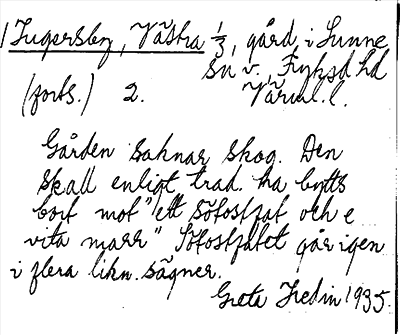 Ingersby, Västra 1/3, gård, i Sunne
sn v., Fryksd hd
(forts.) 2. Värml. l.
Gården saknar skog. Den
skall enligt trad. ha bytts
bort mot "ett sötostfat och e
vita märr" Sötostfatet går igen
i flera likn. sägner.
Greta Hedin 1935.